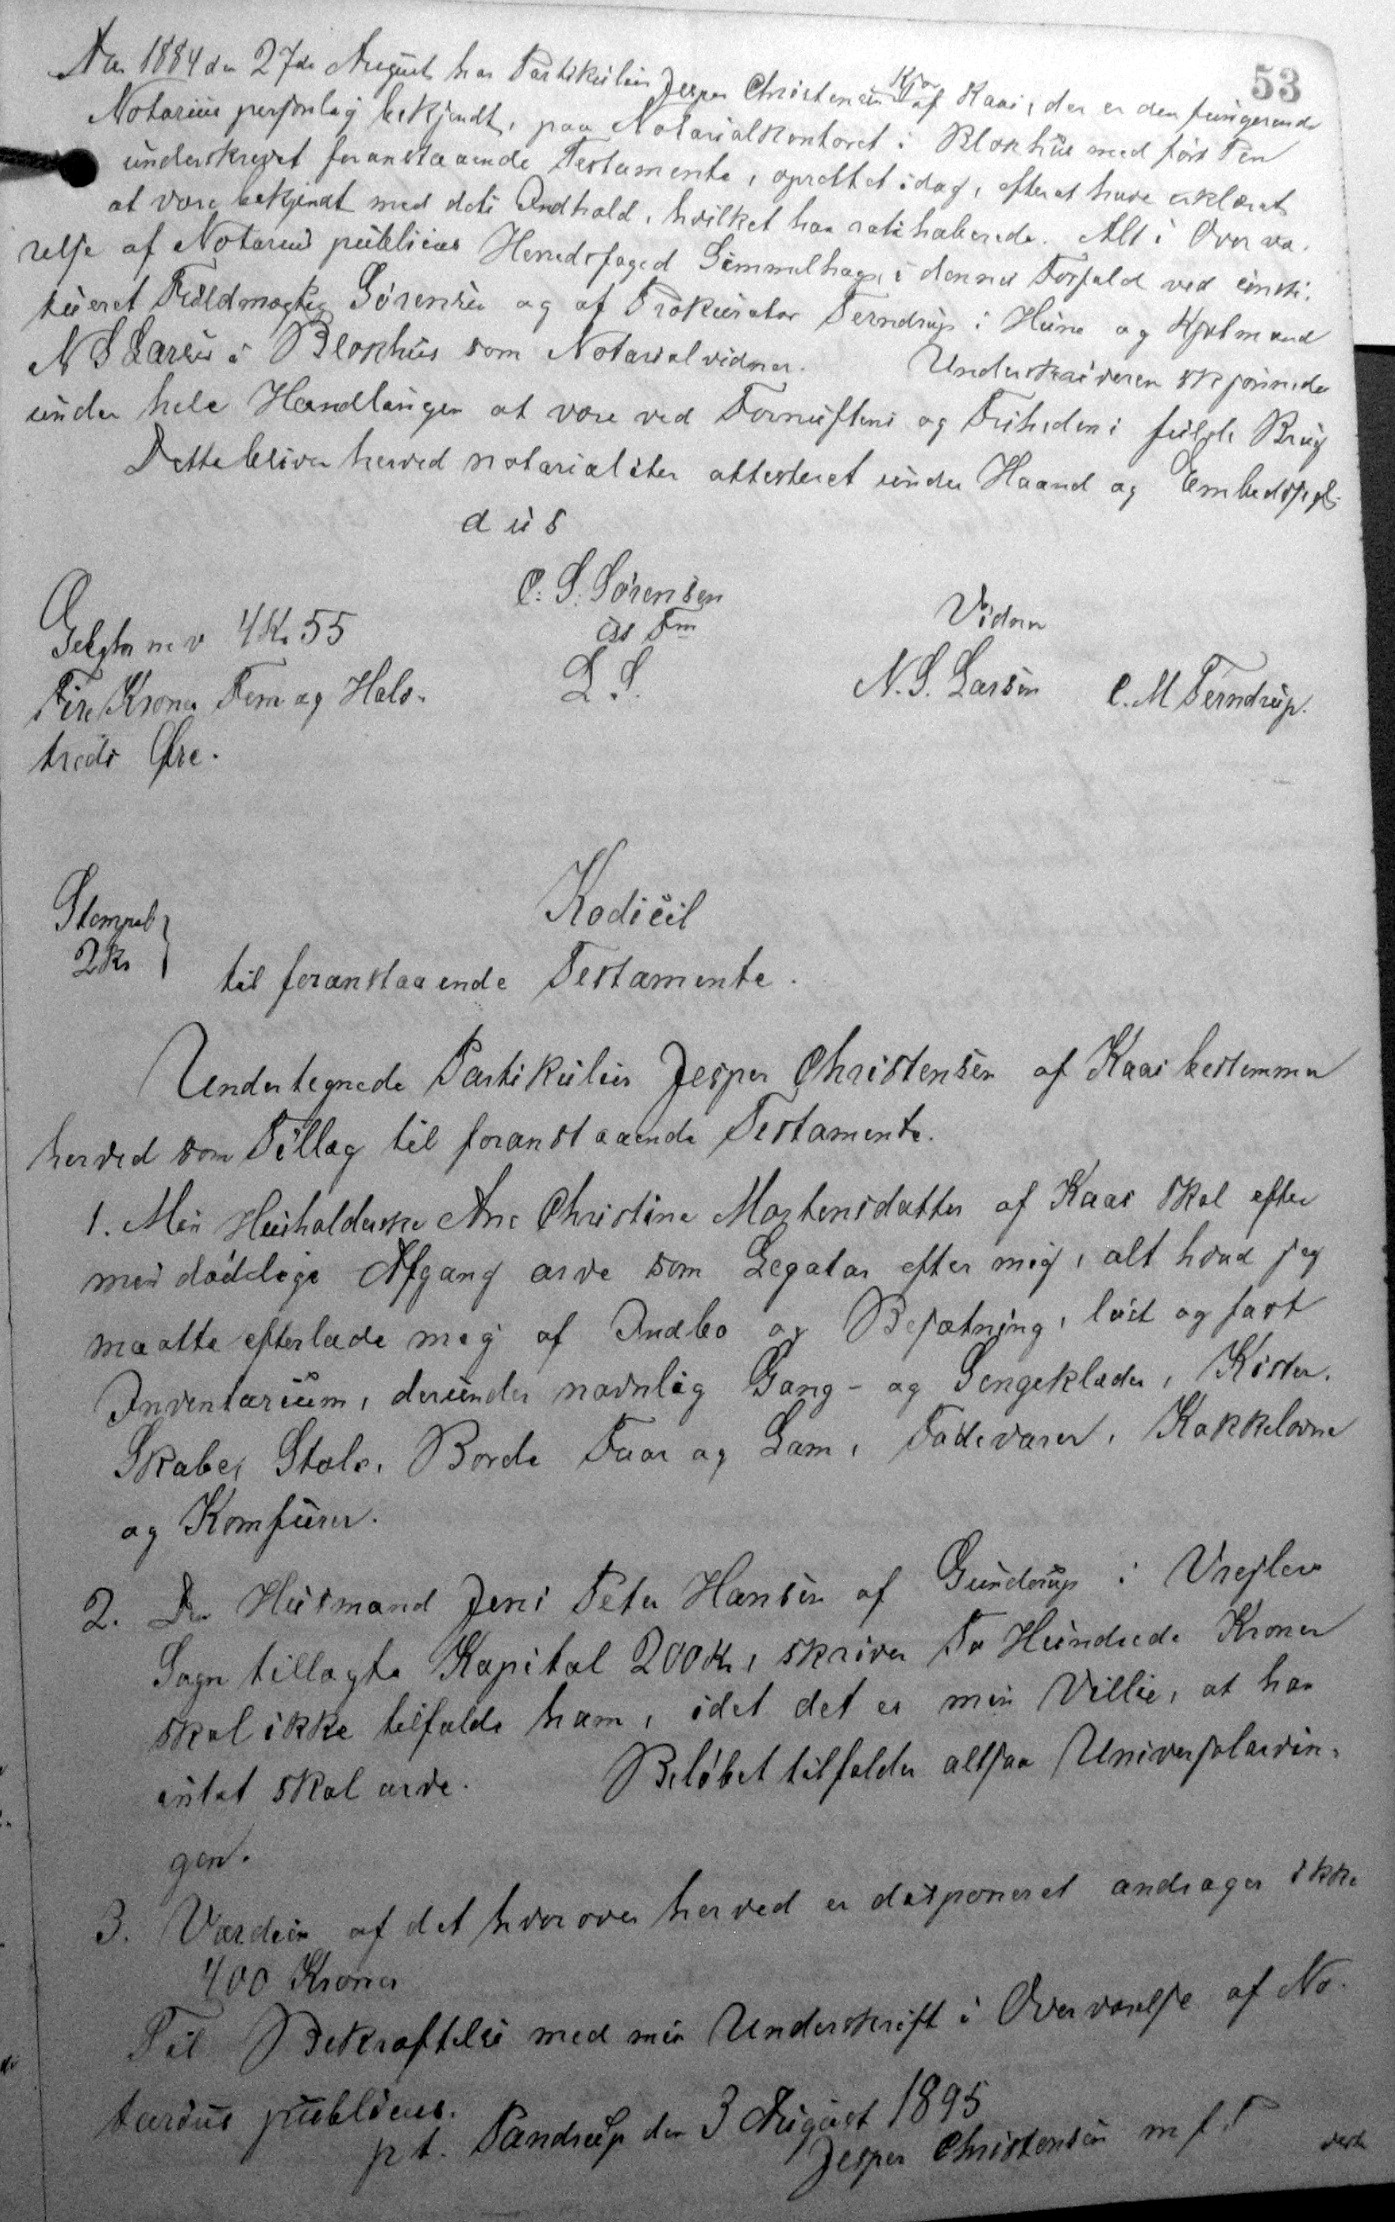 53
Aar 1884 den 27de August har Partikulier Jesper Christensen Kjær af Kaas, der er den fungerende
Notarius personlig bekjendt, paa Notarialkontoret i Blokhus med ført Pen
underskrevet foranstaaende Testamente, oprettet idag, efter at have erklæret
at være bekjendt med dets Indhold, hvilket han ratihaberede. Alt i Overvæ-
relse af Notarius publicus Herredsfoged Simmelhag, i dennes Forfald ved consti-
tueret Fuldmægtig Sørensen og af Prokurator Terndrup i Hune og Kjøbmand
N S Larsen i Blokhus som Notarialvidner. Underskriveren skjønnede
under hele Handlingen at være ved Fornuftens og Frihedens fulde Brug
Dette bliver herved notarialiter attesteret under Haand og Embedssegl.
dus
C. S. Sørensen
cst Fm
L. S.
Vidner
N. S. Larsen C. M Terndrup.
Gebyhr m v 4 Kr 55
Fire Kroner Fem og Halv-
treds Øre.
Stempel
2 Kr
Kodicil
til foranstaaende Testamente.
Undertegnede Partikulier Jesper Christensen af Kaas bestemmer
herved som Tillæg til foranstaaende Testamente.
1. Min Husholderske Ane Christine Mortensdatter af Kaas skal efter
min dødelige Afgang arve som Legatar efter mig, alt hvad jeg
maatte efterlade mig af Indbo og Besætning, løst og fast
Inventarium, derunder navnlig Gang- og Sengeklæder, Kister,
Skabe, Stole, Borde Faar og Lam, Fødevarer, Kakkelovne
og Komfurer.
2. Den Husmand Jens Peter Hansen af Gunderup i Vrejlev
Sogn tillagte Kapital 200 Kr, skriver To Hundrede Kroner
skal ikke tilfalde ham, idet det er min Villie, at han
intet skal arve. Beløbet tilfalder altsaa Universalarvin-
gen.
3. Værdien af det hvorover herved er disponeret andrager ikke
400 Kroner
Til Bekræftelse med min Underskrift i Overværelse af No-
tarius publicus.
p t. Pandrup den 3 August 1895
Jesper Christensen m f P